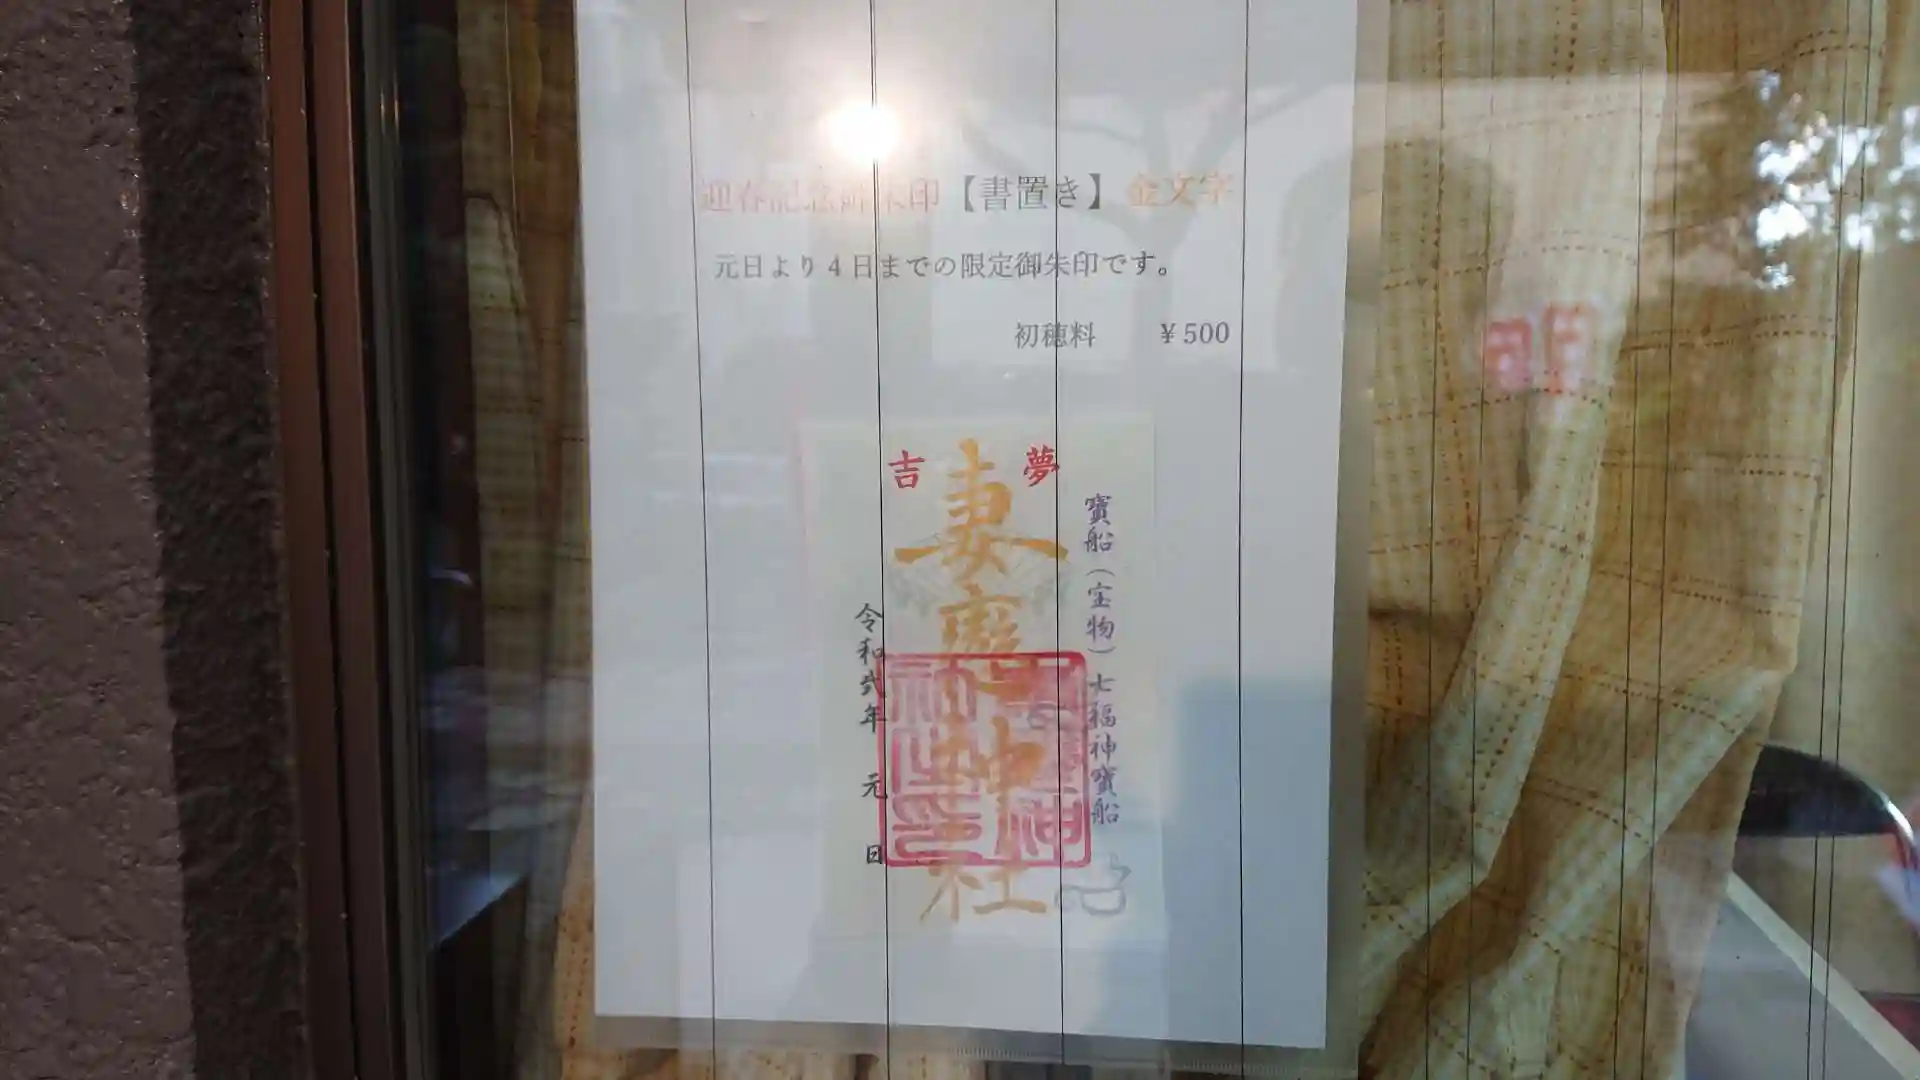 迎春記念御朱印【書置き】金文字
元日より4日までの限定御朱印です。
初穂料 ¥500
夢
吉
寳船（宝物）七福神寳船
妻戀神社
令和弐年 元 日